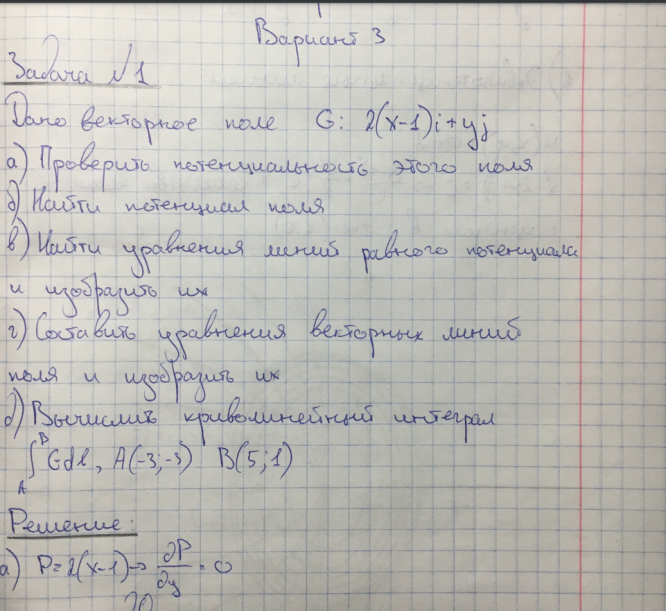 Вариант 3
Задача №1
Дано векторное поле G: 2(x-1)i+yj
а) Проверить потенциальность этого поля
б) Найти потенциал поля
в) Найти уравнения линий равного потенциала
и изобразить их
г) Составить уравнения векторных линий
поля и изобразить их
д) Вычислить криволинейный интеграл
∫_A^B Gdl, A(-3;-3) B(5;1)
Решение:
а) P=2(x-1) → ∂P/∂y = 0